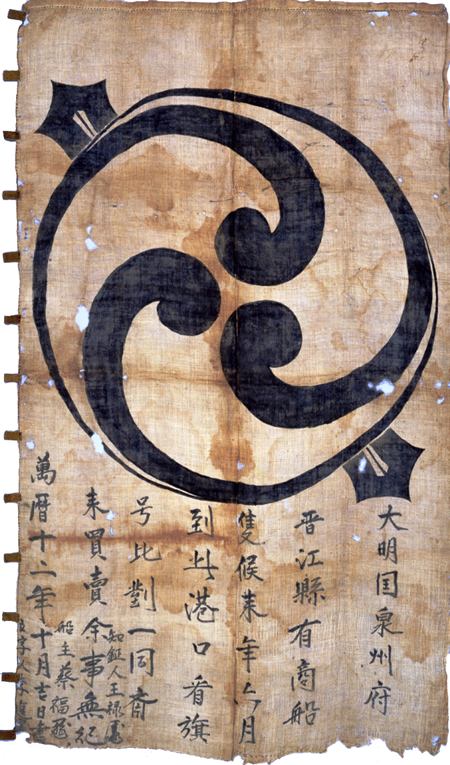 大明国泉州府
晋江縣有商船
隻候来年六月
到此港口看旗
号比對一同斉
来買賣余事無紀
知鉦人王禄
萬暦十二年十月吉日書
船主蔡福